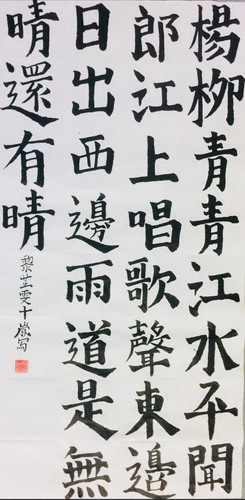 楊柳青青江水平聞
郎江上唱歌聲東邊
日出西邊雨道是無
晴還有晴
黎芷雯十歲写